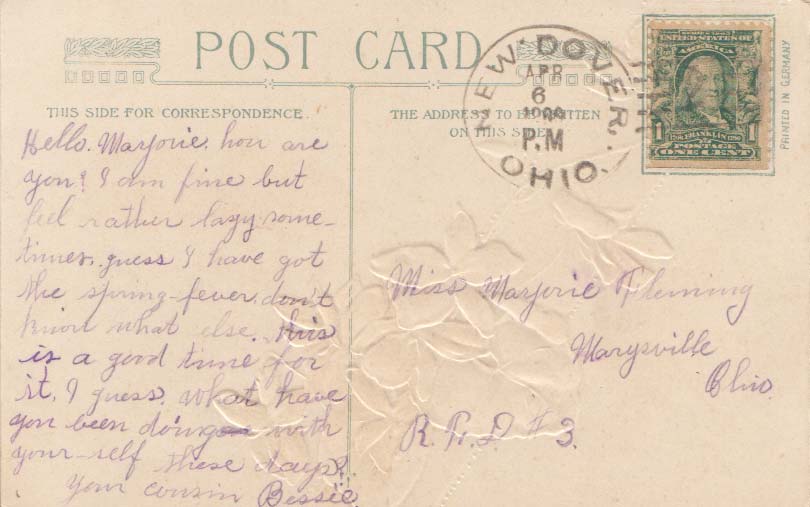 POST CARD
THIS SIDE FOR CORRESPONDENCE.
THE ADDRESS TO BE WRITTEN
ON THIS SIDE
Hello. Marjorie. how are
you? I am fine but
feel rather lazy some-
times. guess I have got
the spring-fever. don't
know what else. this
is a good time for
it, I guess. what have
you been doing with
your-self these days?
Your cousin Bessie.
NEW DOVER. OHIO.
APR
6
P.M
UNITED STATES OF
AMERICA
FRANKLIN
1 POSTAGE 1
ONE CENT
PRINTED IN GERMANY
Miss Marjorie Fleming
Marysville
Ohio.
R. F. D # 3.